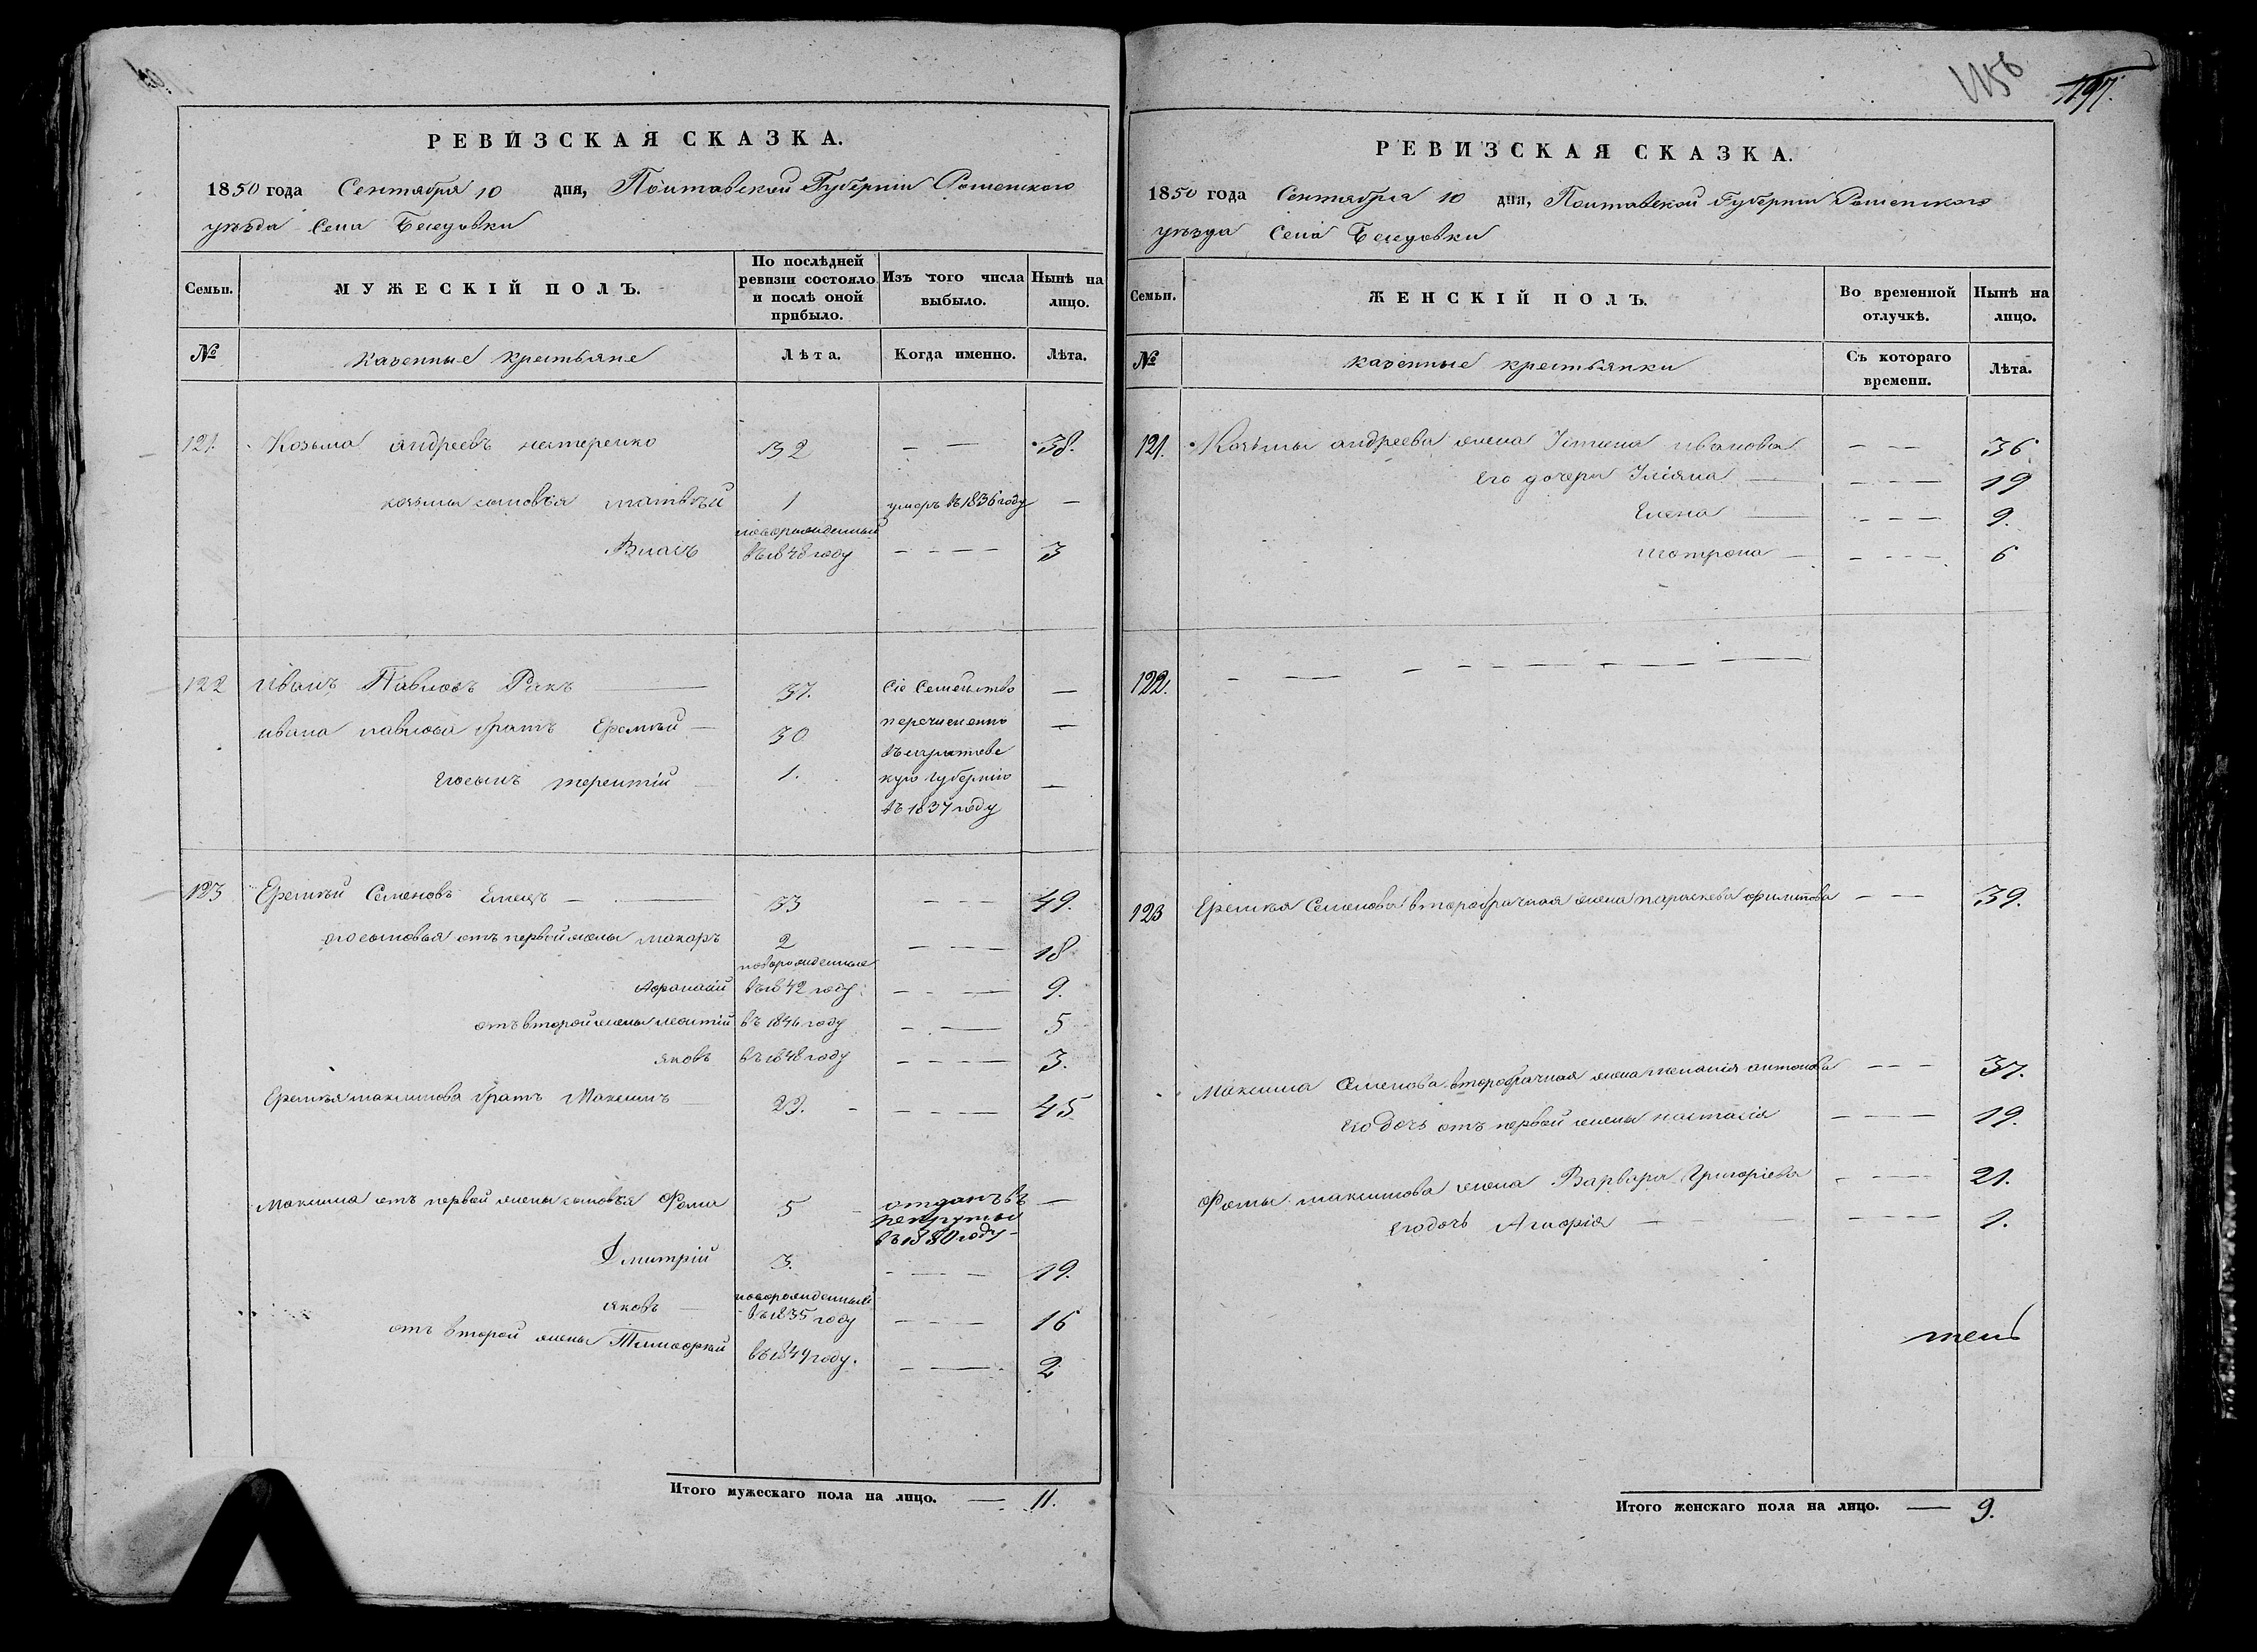 РЕВИЗСКАЯ СКАЗКА.
1850 года Сентября 10 дня, Полтавской Губерніи Роменского
уѣзда Села Беседовки
Семьи. МУЖЕСКІЙ ПОЛЪ. По послѣдней ревизіи состояло и послѣ оной прибыло. Изъ того числа выбыло. Нынѣ на лицо.
№ казенные крестьяне Лѣта. Когда именно. Лѣта.
121. Козьма андреевъ нестеренко 32 — — 38.
козьмы сыновья матвѣй 1 умеръ въ 1836 году —
Власъ новорожденный въ 1848 году — — — 3
122 иванъ Павловъ Ракъ — 37. Сіе Семейство —
ивана павлова братъ Еремѣй — 30 перечисленно —
въ саратовс
его сынъ терентій — 1. кую губернію —
въ 1837 году
123 Еремѣй Семеновъ Емецъ — 33 — — — 49.
его сыновья отъ первой жены макаръ 2 — — — 18
новорожденные
Афанасій въ 1842 году. — — — 9.
отъ второй жены леонтій въ 1846 году — — 5
яковъ въ 1848 году — — — — 3.
Еремѣя максимова братъ Максимъ — 29. — — — — 45.
Максима отъ первой жены сыновья Фома 5 — отданъ въ рекруты въ 1850 году —
Дмитрій 3. — — — 19.
яковъ — новорожденный въ 1835 году — — — 16
отъ второй жены Тимофѣй въ 1849 году. — — 2
Итого мужескаго пола на лицо. — 11.
1156
197.
РЕВИЗСКАЯ СКАЗКА.
1850 года Сентября 10 дня, Полтавской Губерніи Роменского
уѣзда Села Беседовки
Семьи. ЖЕНСКІЙ ПОЛЪ. Во временной отлучкѣ. Нынѣ на лицо.
№ казенные крестьянки Съ котораго времени. Лѣта.
121. Козьмы андреева жена иванова — — 36
Его дочери Уліяна — — — — 19
Елена — — — — 9.
мотрона — — — — 6
122. — — — — — — — —
123 Еремѣя Семенова второбрачная жена параскева филипова — — 39.
Максима Семенова второбрачная жена меланія антонова — — — 37.
его дочь отъ первой жены настасія — — — 19.
Фомы максимова жена Варвара Григоріева — — — 21.
его дочь — — — — — 1.
Итого женскаго пола на лицо. — 9.